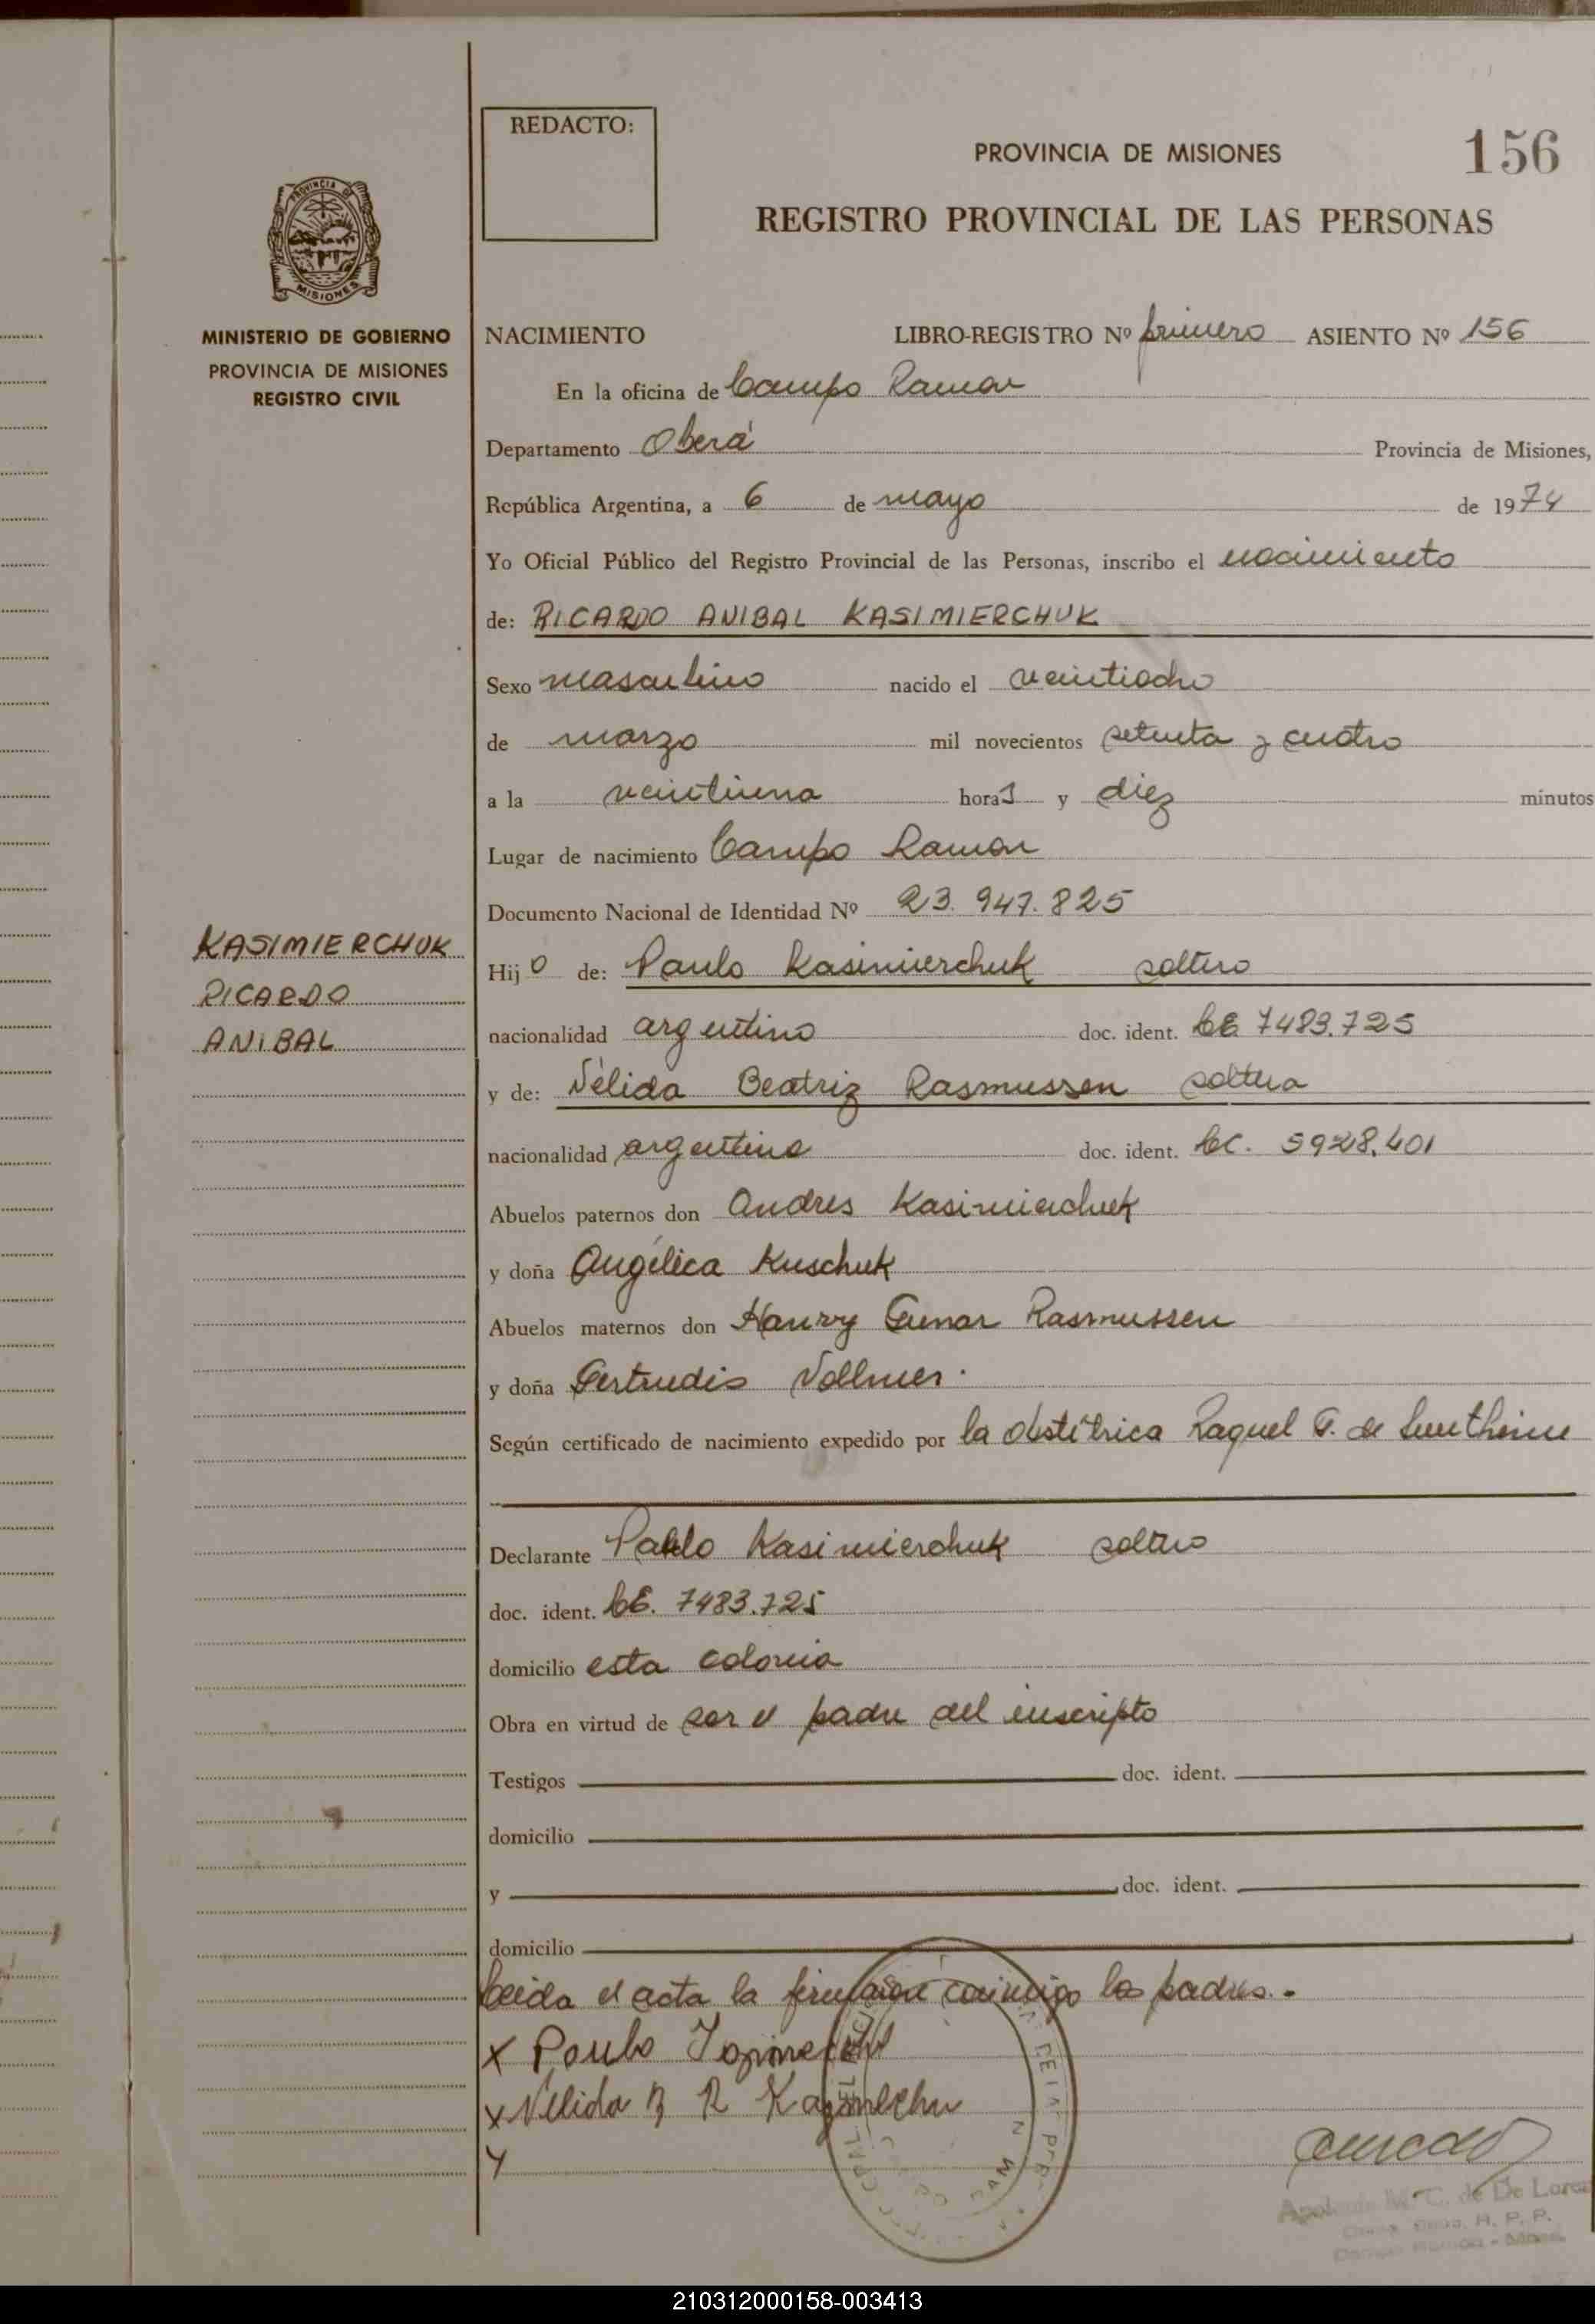 REDACTO:
PROVINCIA DE MISIONES
156
REGISTRO PROVINCIAL DE LAS PERSONAS
PROVINCIA DE
MISIONES
MINISTERIO DE GOBIERNO
PROVINCIA DE MISIONES
REGISTRO CIVIL
KASIMIERCHUK
RICARDO
ANIBAL
NACIMIENTO LIBRO-REGISTRO Nº primero ASIENTO Nº 156
En la oficina de Campo Ramon
Departamento Oberá Provincia de Misiones,
República Argentina, a 6 de mayo de 1974
Yo Oficial Público del Registro Provincial de las Personas, inscribo el nacimiento
de: RICARDO ANIBAL KASIMIERCHUK
Sexo masculino nacido el veintiocho
de marzo mil novecientos setenta y cuatro
a la veintiuna horas y diez minutos
Lugar de nacimiento Campo Ramon
Documento Nacional de Identidad Nº 23.947.825
Hijo de: Paulo Kasimierchuk soltero
nacionalidad argentino doc. ident. LE 7483.725
y de: Nélida Beatriz Rasmussen soltera
nacionalidad argentina doc. ident. LC. 5928.401
Abuelos paternos don Andres Kasimierchuk
y doña Angélica Kuschuk
Abuelos maternos don Hanry Gunar Rasmussen
y doña Gertrudis Vollmer.
Según certificado de nacimiento expedido por la obstétrica Raquel de
Declarante Pablo Kasimierchuk soltero
doc. ident. LE. 7483.725
domicilio esta colonia
Obra en virtud de ser el padre del inscripto
Testigos doc. ident.
domicilio
y doc. ident.
domicilio
Leida el acta la firmaron conmigo los padres.-
x Paulo
x Nelida B R
de De
R. P. P.
210312000158-003413